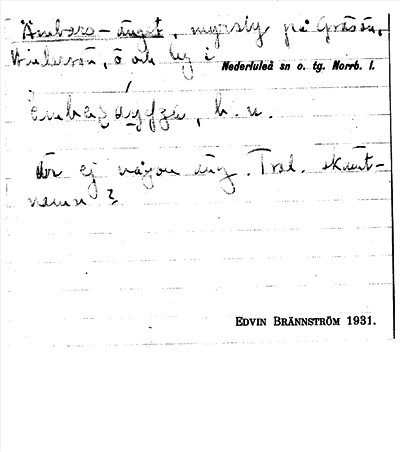 Ämbars-änget, myrsly på Gräsön,
Hindersön, ö och by i Nederluleå sn o. tg. Norrb. l.
b. n.
där ej någon äng. Trol. skämt-
namn?
EDVIN BRÄNNSTRÖM 1931.